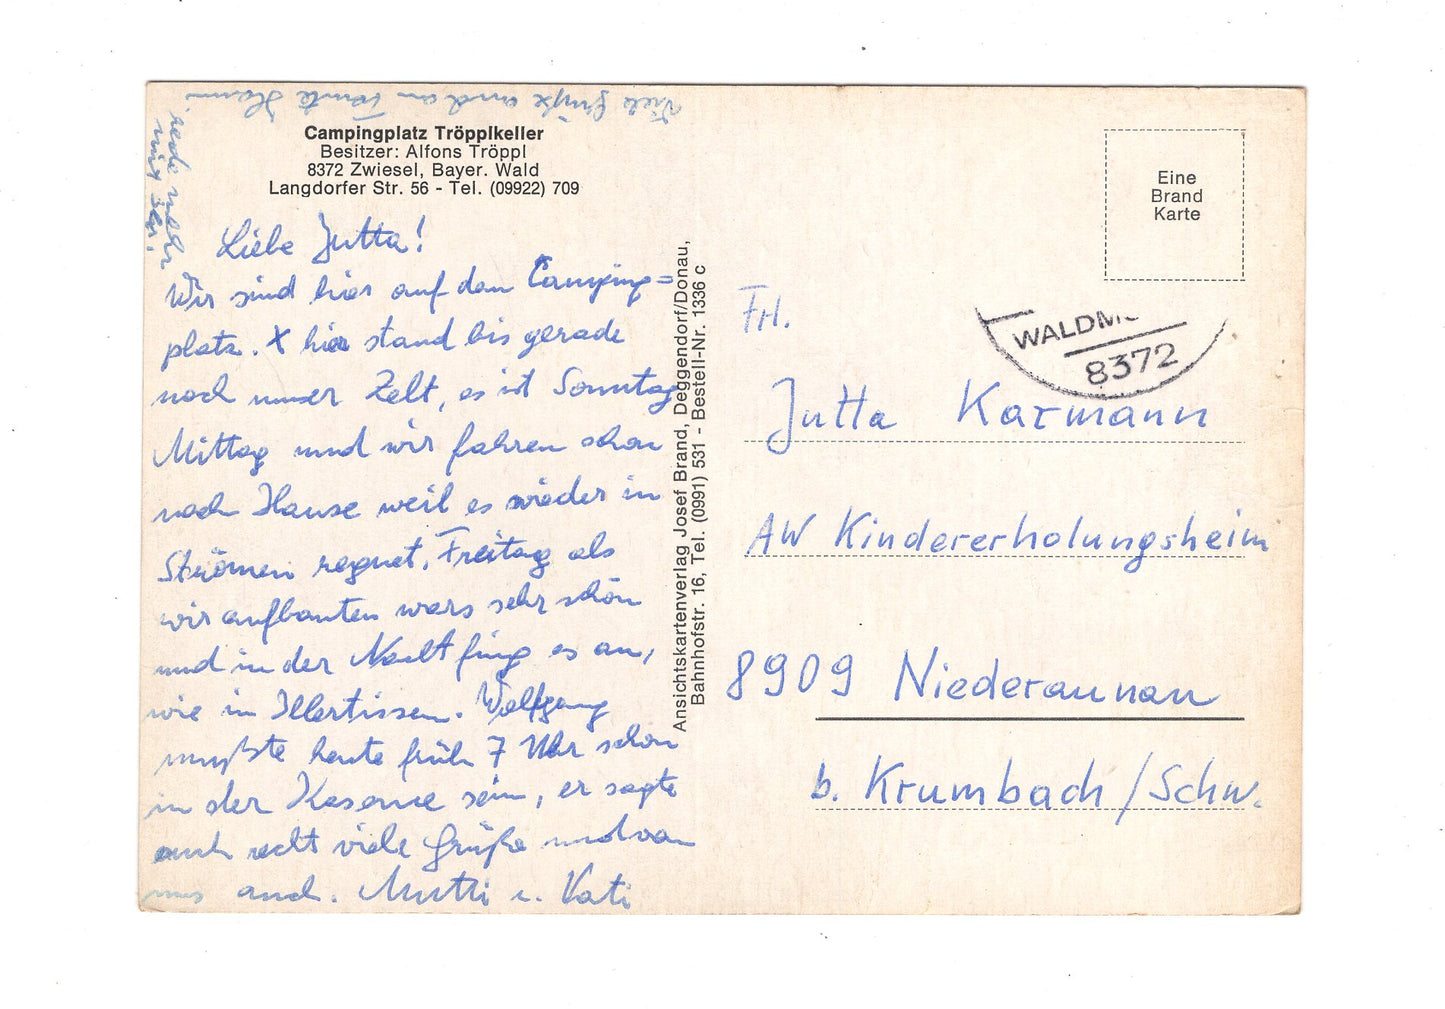 Viele Grüße auch an Tante Hanni
rede mehr
mit ihr!
Campingplatz Tröpplkeller
Besitzer: Alfons Tröppl
8372 Zwiesel, Bayer. Wald
Langdorfer Str. 56 - Tel. (09922) 709
Liebe Jutta!
Wir sind hier auf dem Camping=
platz. X hier stand bis gerade
noch unser Zelt, es ist Sonntag
Mittag und wir fahren schon
nach Hause weil es wieder in
Strömen regnet. Freitag als
wir aufbauten wars sehr schön
und in der Nacht fing es an,
wie in Illertissen. Wolfgang
mußte heute früh 7 Uhr schon
in der Kaserne sein, er sagte
auch recht viele Grüße und von
uns auch. Mutti u. Vati
Ansichtskartenverlag Josef Brand, Deggendorf/Donau,
Bahnhofstr. 16, Tel. (0991) 531 - Bestell-Nr. 1336 c
Eine
Brand
Karte
WALDM
8372
Frl.
Jutta Karmann
AW Kindererholungsheim
8909 Niederaunau
b. Krumbach/Schw.